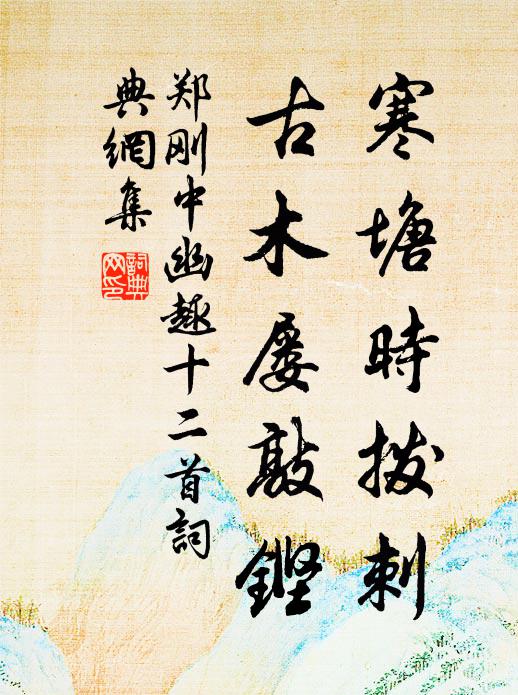 寒塘時拨剌
古木屡敲鏗
郑刚中幽趣十二首詞
典網集
詞典
网印